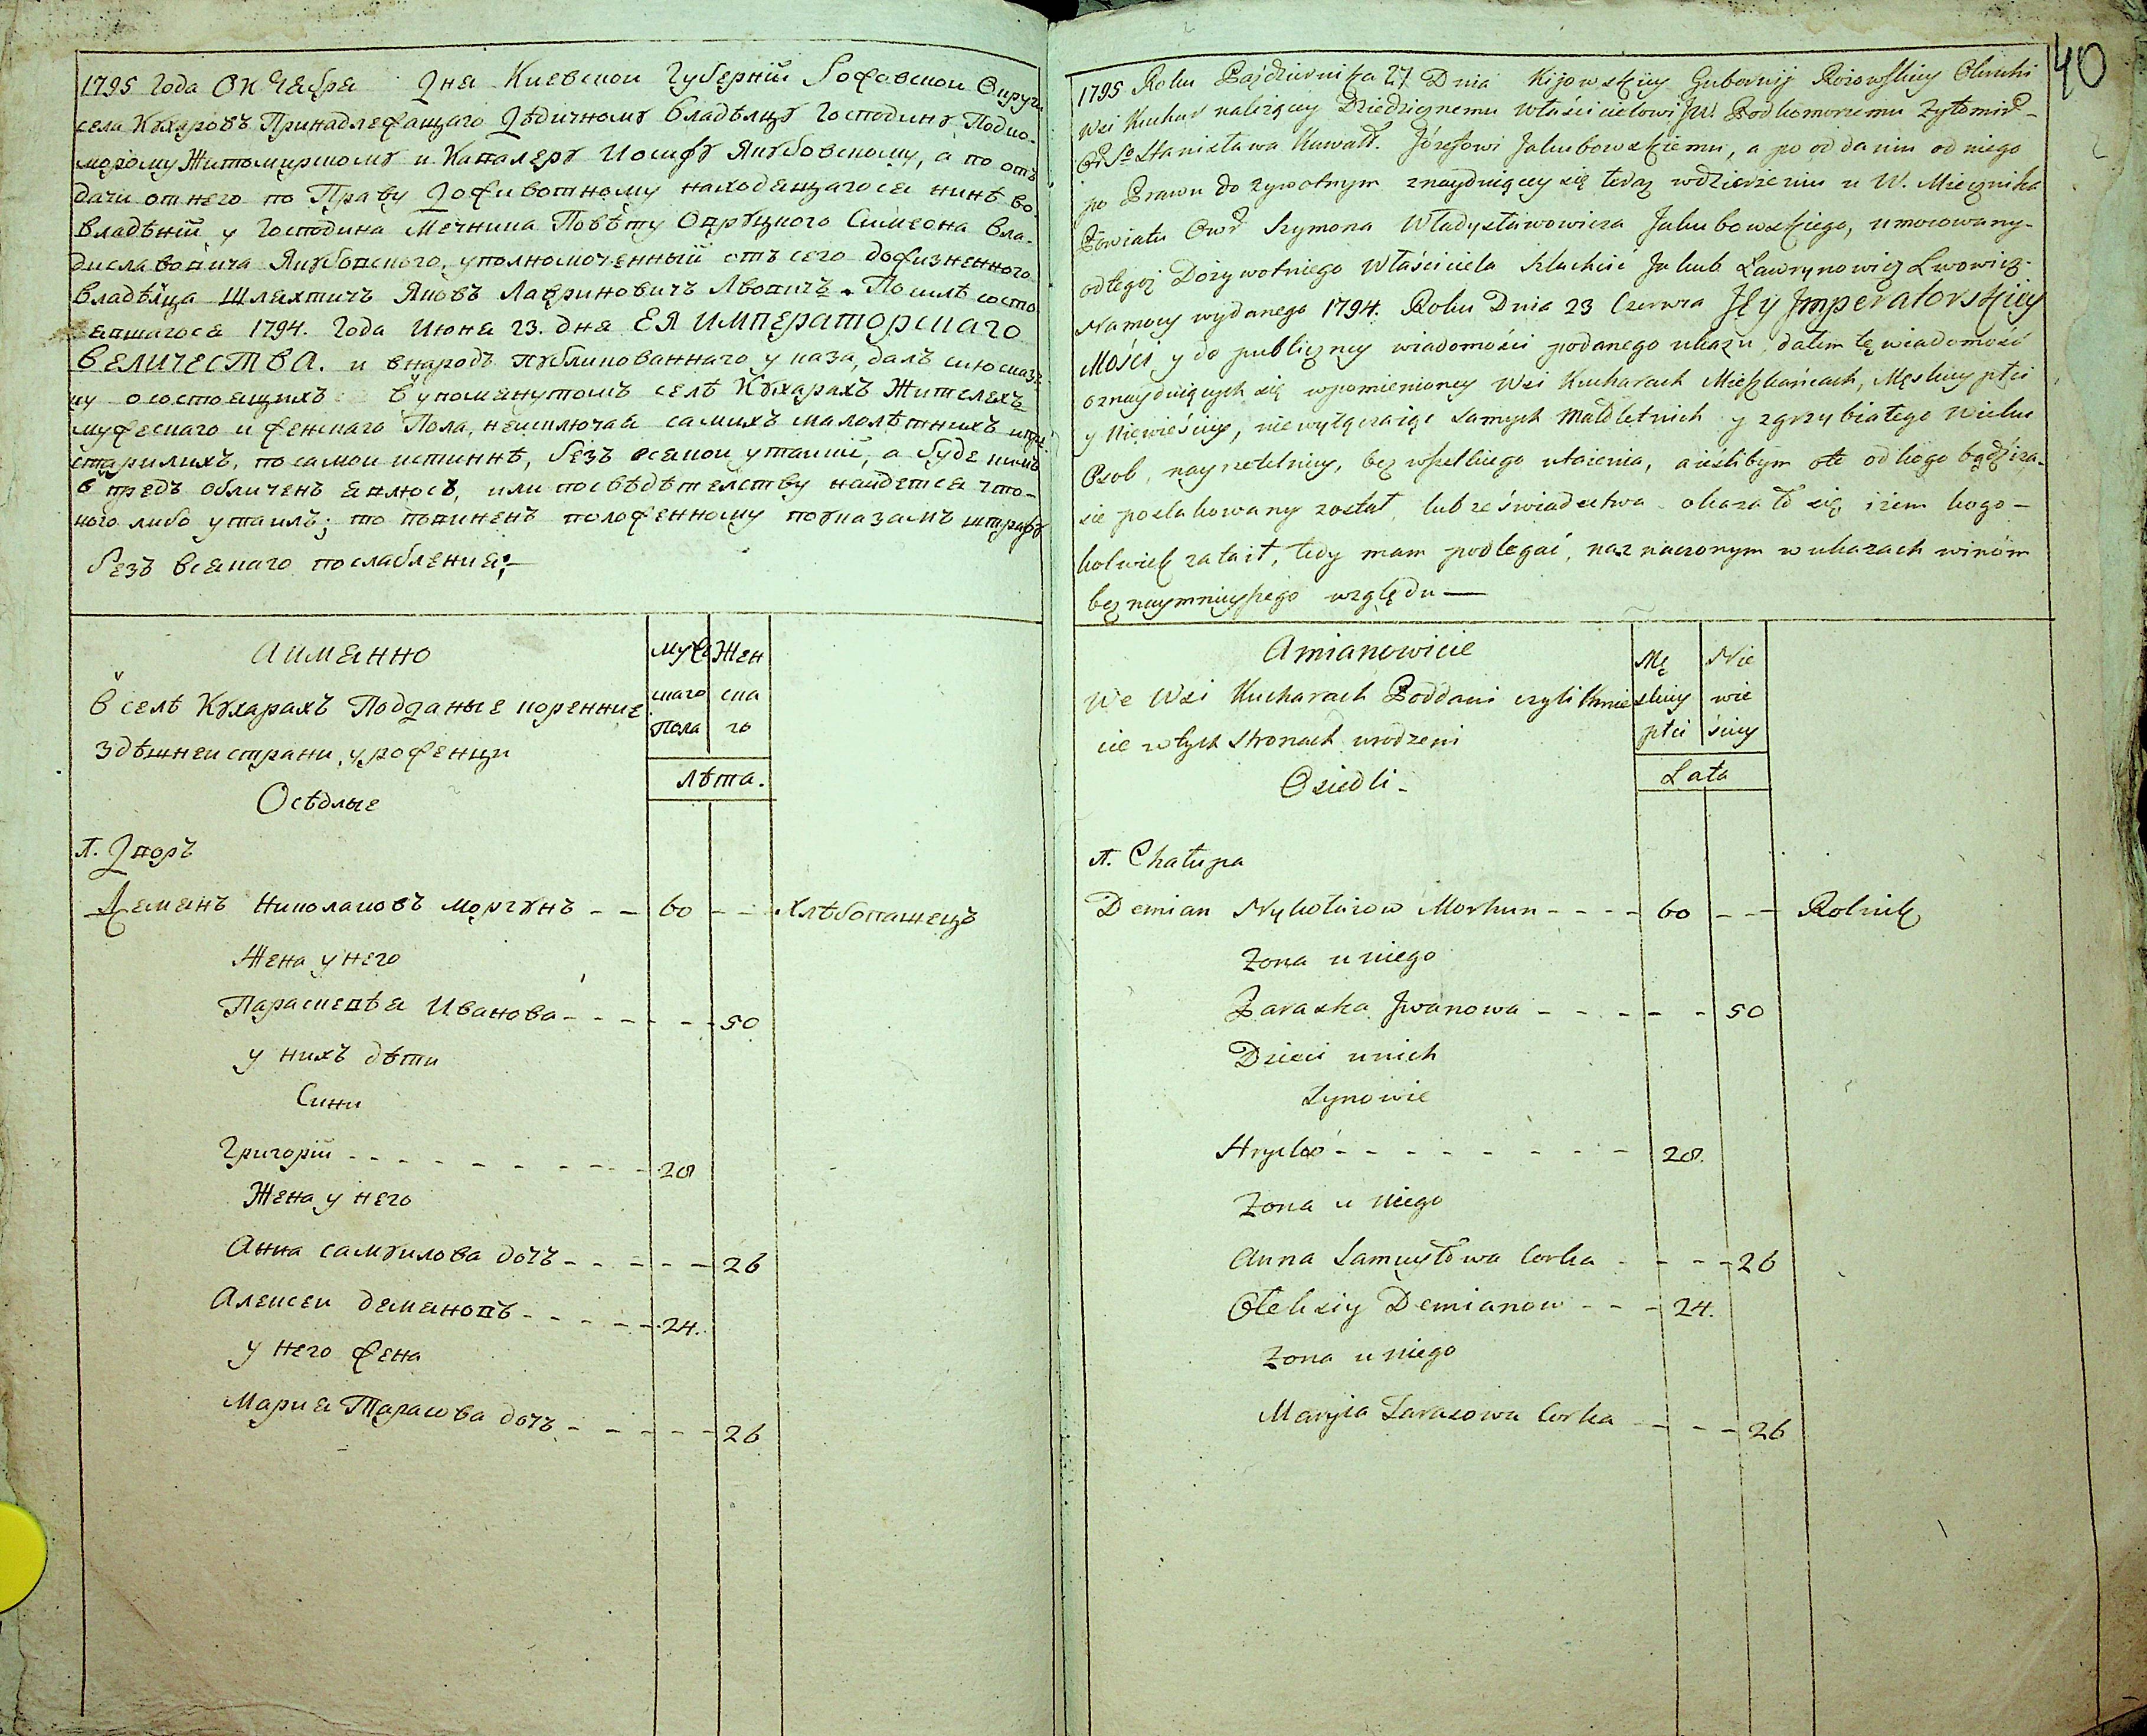 1795 Года Октября Дня Киевской Губернїи Рожовской Округи
села Кухаровъ Принадлежащаго Дѣдичному владѣлцу Господину Подко-
морому Житомирскому и Кавалеру Иосифу Якубовскому, а по отъ
дачи отнего по Праву Доживотному находящагося нинѣ во
владѣнїи у Господина Мечника Повѣту Овруцкого Симеона Вла-
диславовича Якубовского, уполномоченный отъ сего дожизненного
владѣлца Шляхтичъ Яковъ Лавриновичъ Лвовичъ. По силѣ состо
явшагося 1794. Года Июня 23. дня ЕЯ ИМПЕРАТОРСКАГО
ВЕЛИЧЕСТВА. и внародъ публикованнаго указа, далъ сию сказ
ку осостоящихъ вупомянутомъ селѣ Кухарахъ Жителехъ
мужескаго и женскаго Пола, неисключая самихъ малолѣтнихъ и пре
старилихъ, по самой истиннѣ, безъ всякой утайки, а буде кимъ
впредъ обличенъ явлюсь, или посвѣдѣтелству найдется что-
кого либо утаилъ; то повиненъ положенному поуказамъ штрафу
безъ всякаго послабления;—
Аимянно
в селѣ Кухарахъ Подданые коренние
здѣшней страни, уроженци
Осѣдлые
муже Жен
скаго ска
Пола го
лѣта.
1. Дворъ
Демянъ Николаювъ Моргунъ – – 60 – – Хлѣбопашецъ
Жена у него
Параскевѣя Иванова – – – – – 50
у нихъ дѣти
Сини
Григорій – – – – – – – – – 28
Жена у него
Анна самуилова дочъ – – – – – 26
Алексей демяновъ – – – – – 24.
у него жена
Мария Тарасова дочъ – – – – – 26
40
1795 Roku Października 27 Dnia Kijowskiey Gubernij Rożowskiey Okruhi
Wsi Kuchar należącey Dziedzicznemu Właścicielowi JW. Podkomorzemu Żytomir-
Or. S° Stanisława Kawalr. Józefowi Jakubowskiemu, a po oddaniu od niego
po Prawu dożywotnym znayduiącey się teraz wdzierżeniu u W. Miecznika
Powiatu Owr. Szymona Władysławowicza Jakubowskiego, umocowany-
odtegoż Dożywotniego Właściciela Szlachcic Jakub Ławrynowicz Lwowicz.
Na mocy wydanego 1794. Roku Dnia 23 Czerwca JEy Jmperatorskiey
Mości y do publiczney wiadomości podanego ukazu, dałem tę wiadomość
oznayduiących się wpomienioney Wsi Kucharach Mieszkańcach, Męskiey płci
y Niewieściey, niewyłączaiąc samych Małoletnich y zgrzybiałego Wieku
Osob, nayrzetelniey, bez wszelkiego utaienia, aieślibym
sie poszlakowany został, lub ze świadectwa okazało się iżem kogo-
kolwiek zataił, tedy mam podlegać, naznaczonym w ukazach winóm
bez naymnieyszego względu—
Amianowicie
We Wsi Kucharach Poddani czyli Kmie
cie w tych stronach urodzeni
Osiedli.
Mę Nie
skiey wie
płci ściey
Lata
1. Chałupa
Demian Nykołaiow Morhun – – – – 60 – – Rolnik
Żona u niego
Paraska Jwanowa – – – – – 50
Dzieci unich
Synowie
Hryhor – – – – – – – – 28.
Żona u niego
Anna Samuyłowa Corka – – – – 26
Oleksiy Demianow – – – 24.
Żona u niego
Maryia Tarasowa Corka – – – – 26